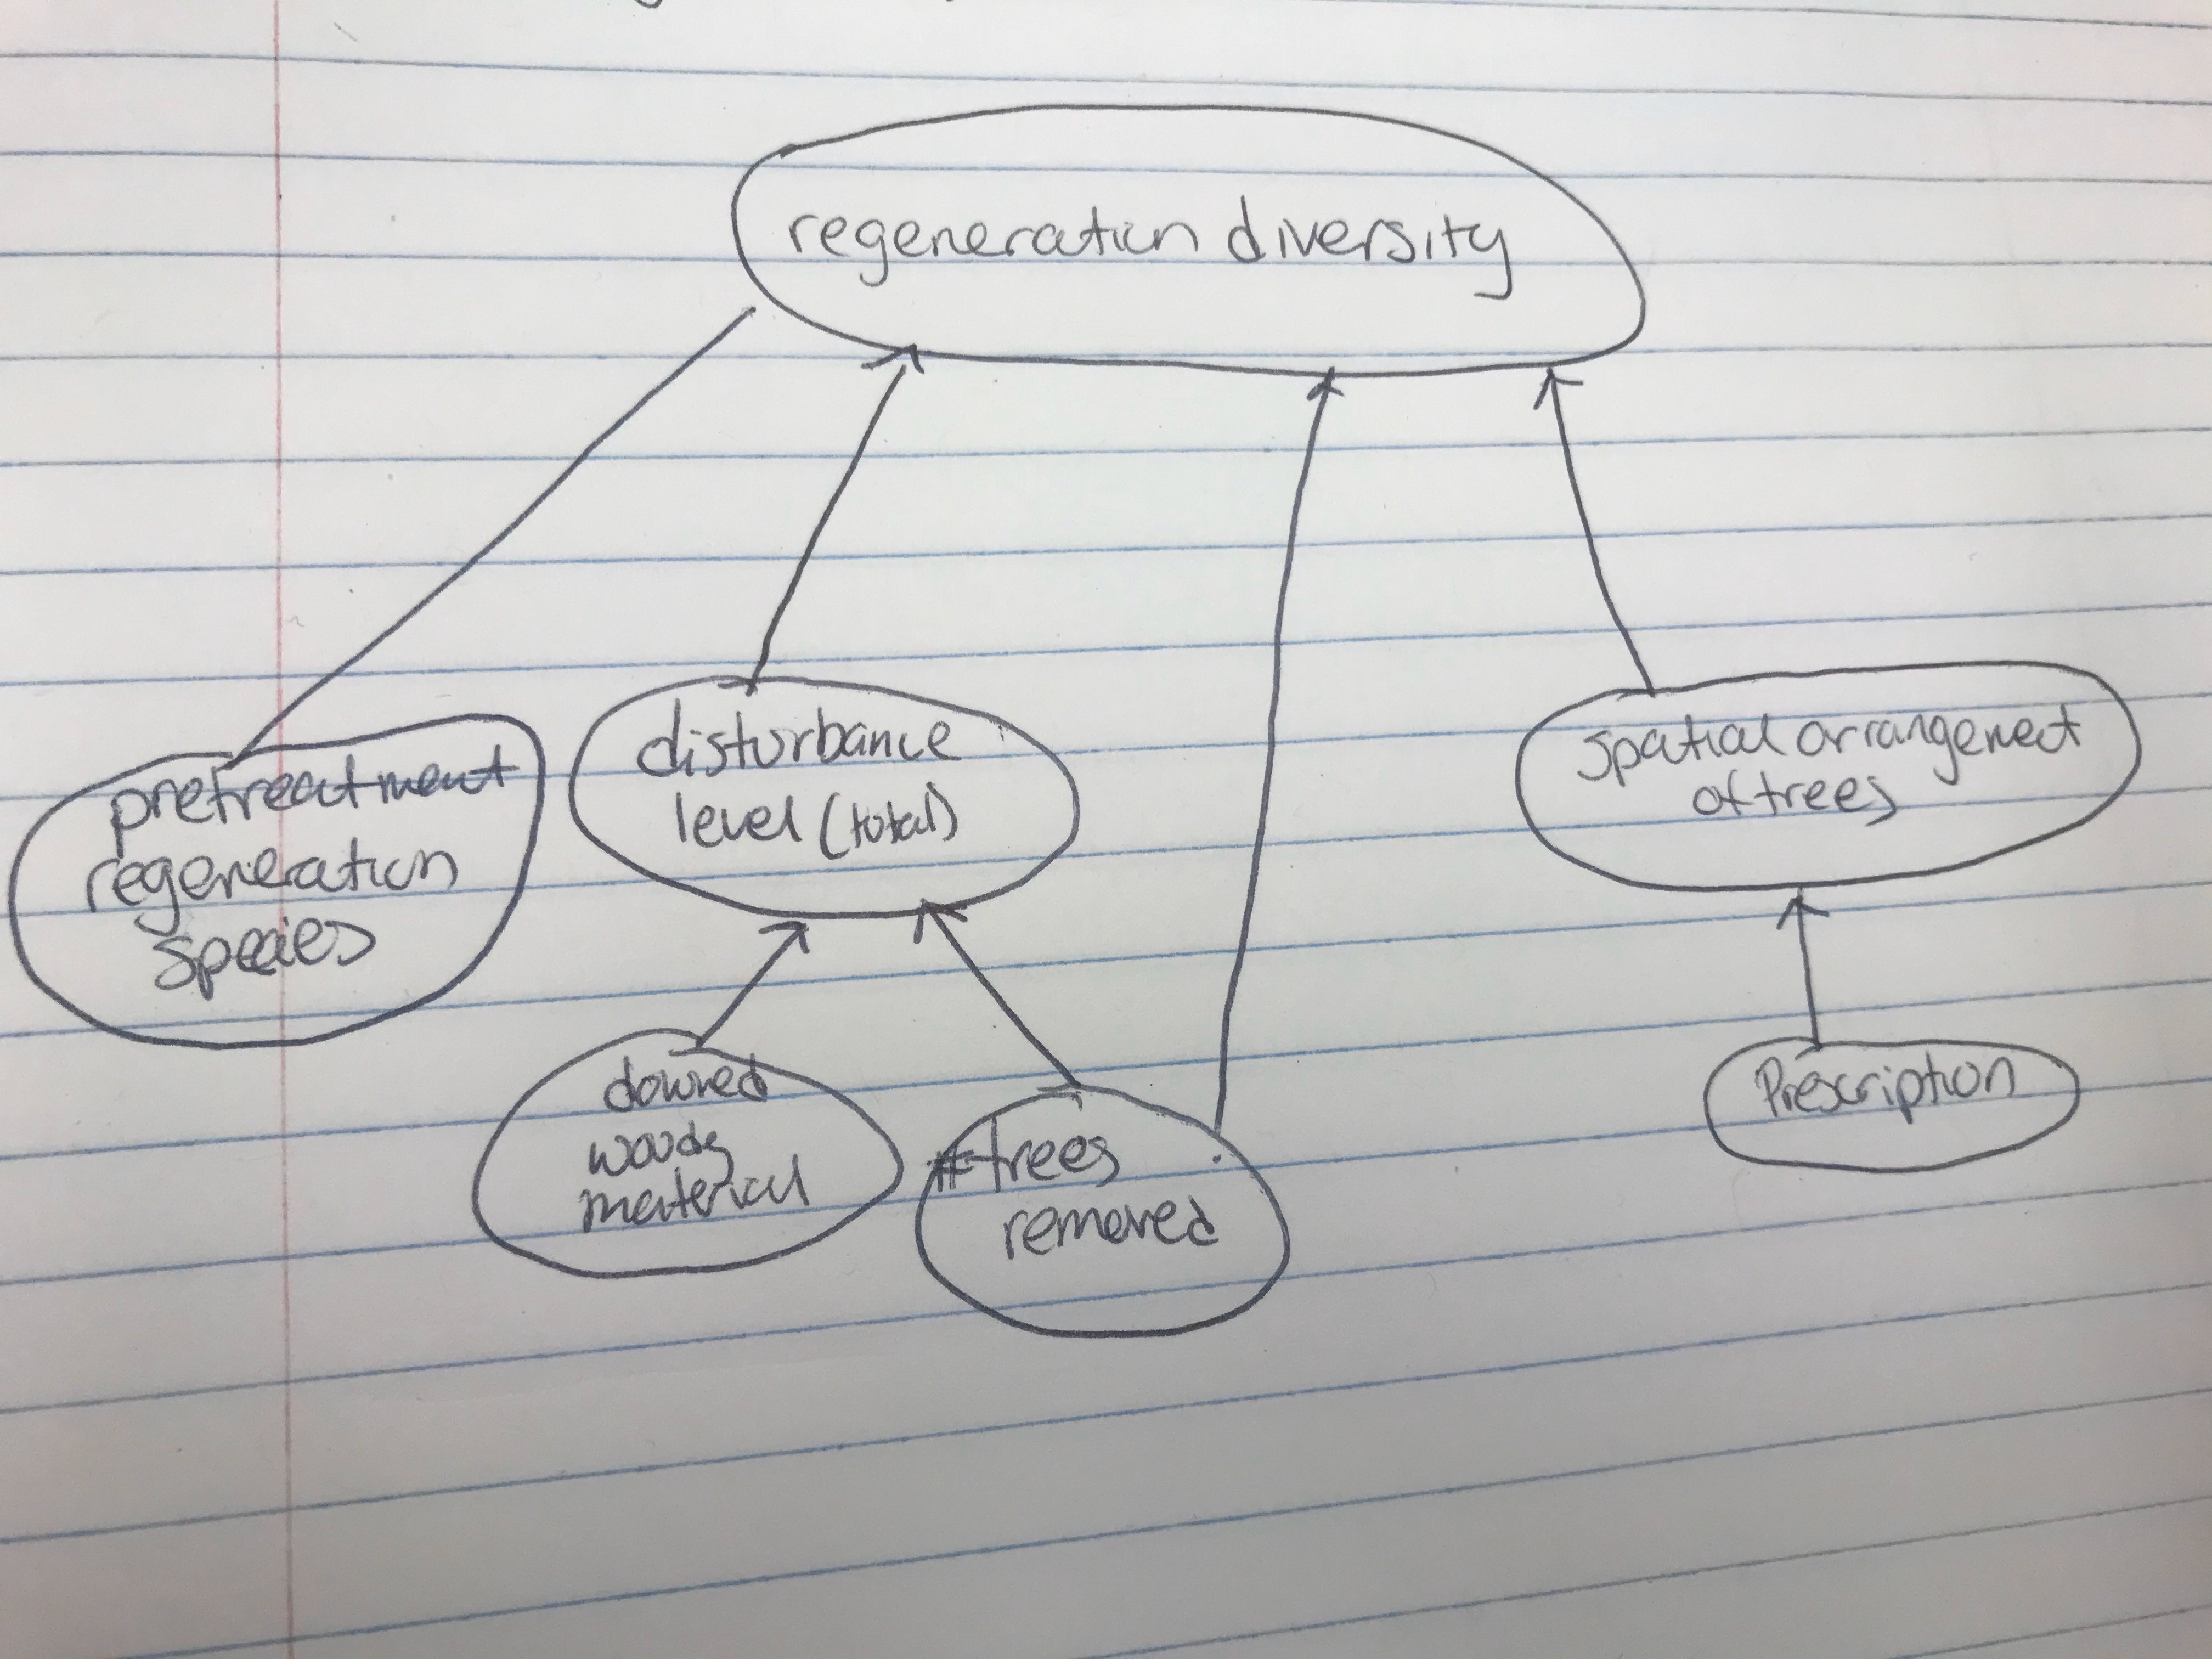 regeneration diversity
pretreatment
regeneration
species
disturbance
level (total)
spatial arrangement
of trees
downed
woody
material
#trees
removed
Prescription